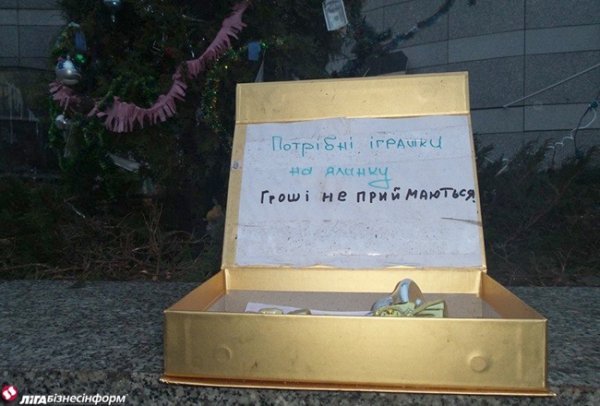 Потрібні іграшки
на ялинку
Гроші не приймаються
ЛІГАБІЗНЕСІНФОРМ